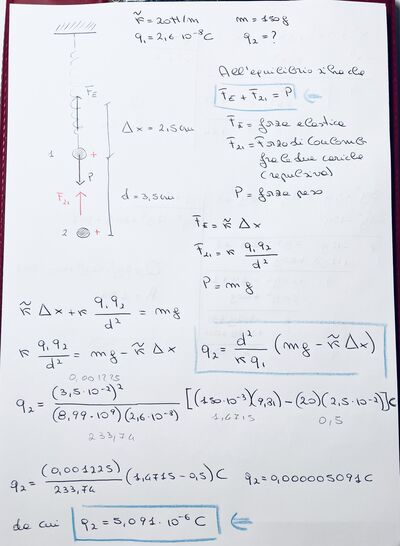 k̃ = 20 N/m   m = 150 g
q₁ = 2,6 · 10⁻⁸ C   q₂ = ?
All'equilibrio si ha che
F̄_E + F̄₂₁ = P
F̄_E
Δx = 2,5 cm
F̄_E = forza elastica
1 +
F̄₂₁ = Forza di Coulomb
fra le due cariche
P
(repulsiva)
F̄₂₁
d = 3,5 cm
P = forza peso
2 +
F̄_E = k̃ Δx
F̄₂₁ = k q₁q₂/d²
P = mg
k̃ Δx + k q₁q₂/d² = mg
k q₁q₂/d² = mg - k̃ Δx
q₂ = d²/(k q₁) (mg - k̃ Δx)
0,001225
q₂ = (3,5·10⁻²)²/((8,99·10⁹)(2,6·10⁻⁸)) [(150·10⁻³)(9,81) - (20)(2,5·10⁻²)] C
1,4715   0,5
233,74
q₂ = (0,001225)/233,74 (1,4715 - 0,5) C   q₂ = 0,000005091 C
da cui q₂ = 5,091 · 10⁻⁶ C